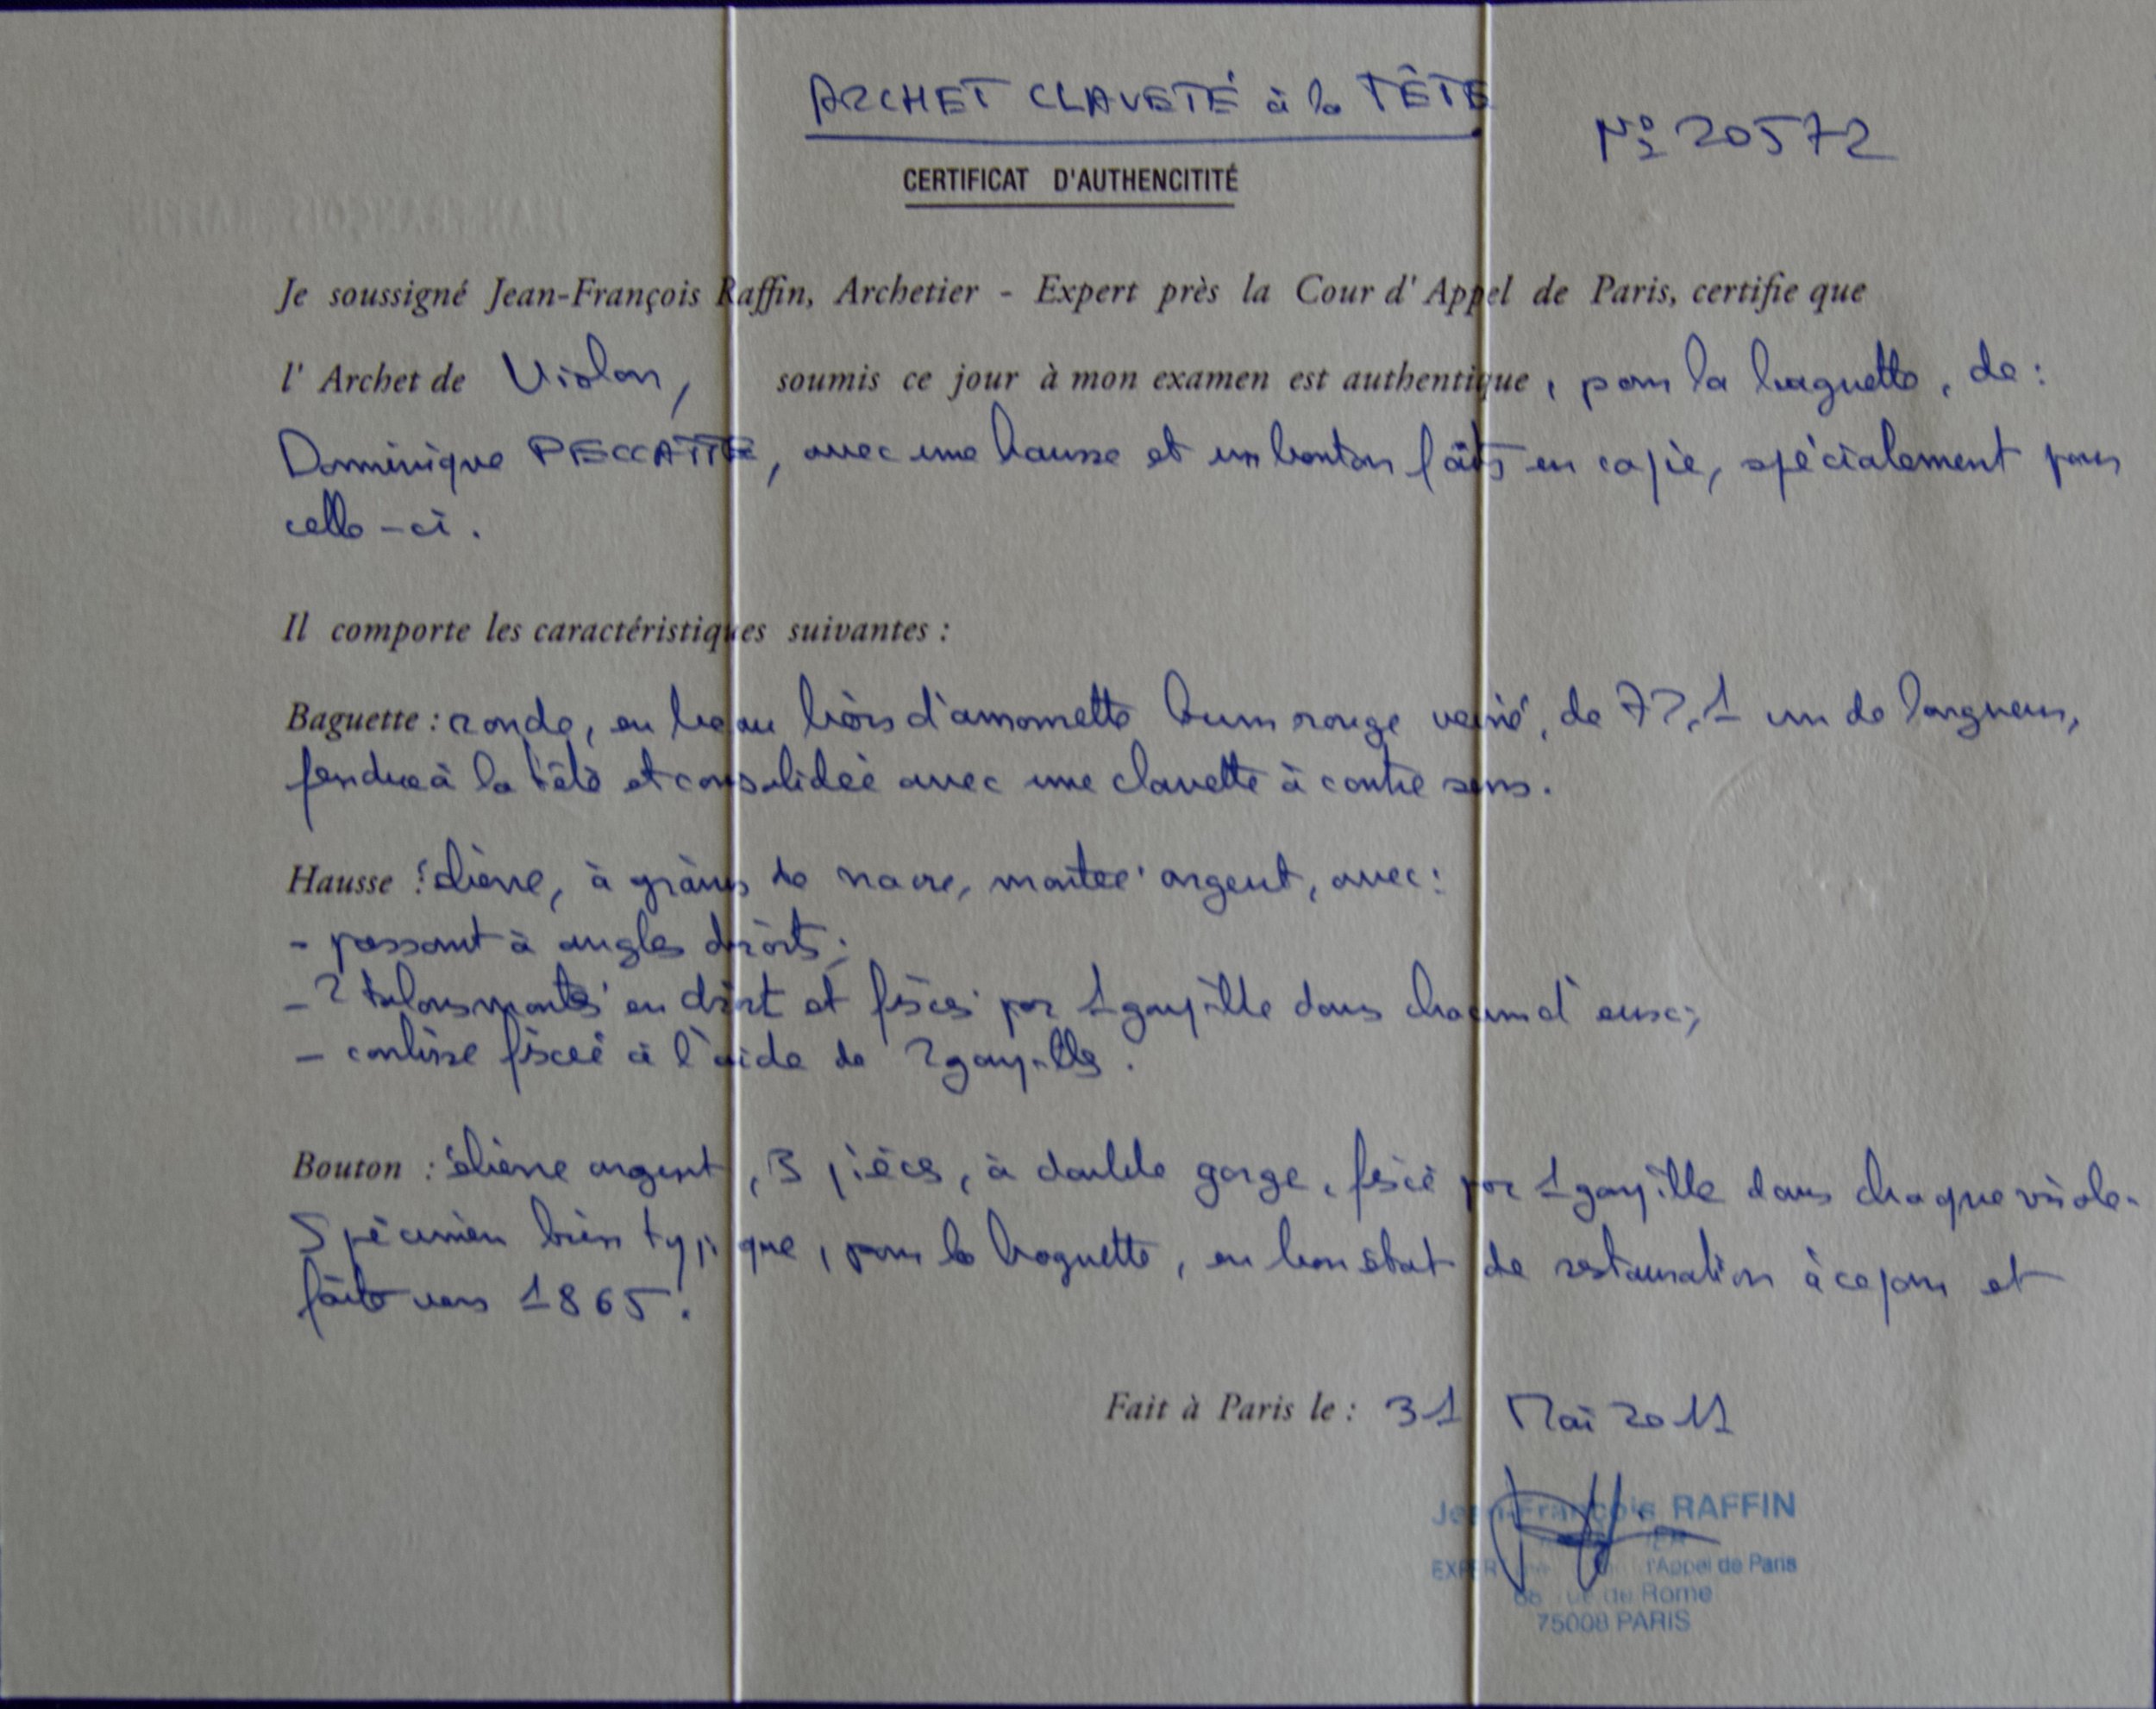 ARCHET CLAVETÉ à la TÊTE
N° 20572
CERTIFICAT D'AUTHENCITITÉ
JEAN-FRANÇOIS RAFFIN
Je soussigné Jean-François Raffin, Archetier - Expert près la Cour d'Appel de Paris, certifie que
l'Archet de Violon, soumis ce jour à mon examen est authentique, pour la baguette, de :
Dominique PECCATTE, avec une hausse et un bouton faits en copie, spécialement pour
celle-ci.
Il comporte les caractéristiques suivantes :
Baguette : ronde, en beau bois d'amourette brun rouge veiné, de 72,1 cm de longueur,
fendue à la tête et consolidée avec une clavette à contre sens.
Hausse : ébène, à grains de nacre, montée argent, avec :
- passant à angles droits ;
- 2 talons montés en droit et fixés par 1 goupille dans chacun d'eux ;
- coulisse fixée à l'aide de 2 goupilles.
Bouton : ébène argent, 3 pièces, à double gorge, fixé par 1 goupille dans chaque virole.
Spécimen bien typique, pour la baguette, en bon état de restauration à ce jour et
faite vers 1865.
Fait à Paris le : 31 Mai 2011
Jean-François RAFFIN
EXPERT l'Appel de Paris
68 rue de Rome
75008 PARIS